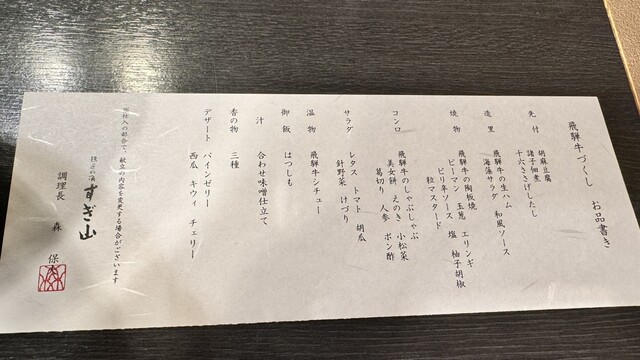 飛騨牛づくし　お品書き
先付　胡麻豆腐
諸子佃煮
十六ささげしたし
造里　飛騨牛の生ハム　和風ソース
海藻サラダ
焼物　飛騨牛の陶板焼　エリンギ
ピーマン　玉葱　塩　柚子胡椒
ピリ辛ソース
粒マスタード
コンロ　飛騨牛のしゃぶしゃぶ
美女餅　えのき　小松菜
葛切り　人参　ポン酢
サラダ　レタス　トマト　胡瓜
針野菜　けづり
温物　飛騨牛シチュー
御飯　はつしも
汁　合わせ味噌仕立て
香の物　三種
デザート　パインゼリー
西瓜　キウィ　チェリー
※仕入の都合で、献立の内容を変更する場合がございます
すぎ山
調理長　森　保